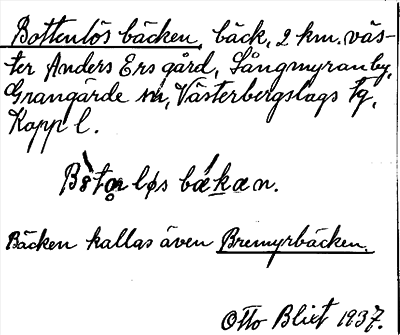 Bottenlös bäcken, bäck, 2 km. väs-
ter Anders Ers gård, Långmyran by,
Grangärde sn, Västerbergslags tg,
Kopp l.
løs
Bäcken kallas även Bremyrbäcken.
Otto Blixt 1937.